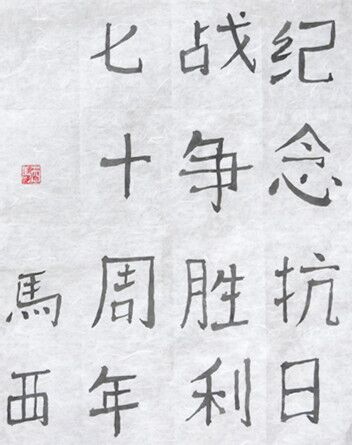 纪念抗日
战争胜利
七十周年
馬西